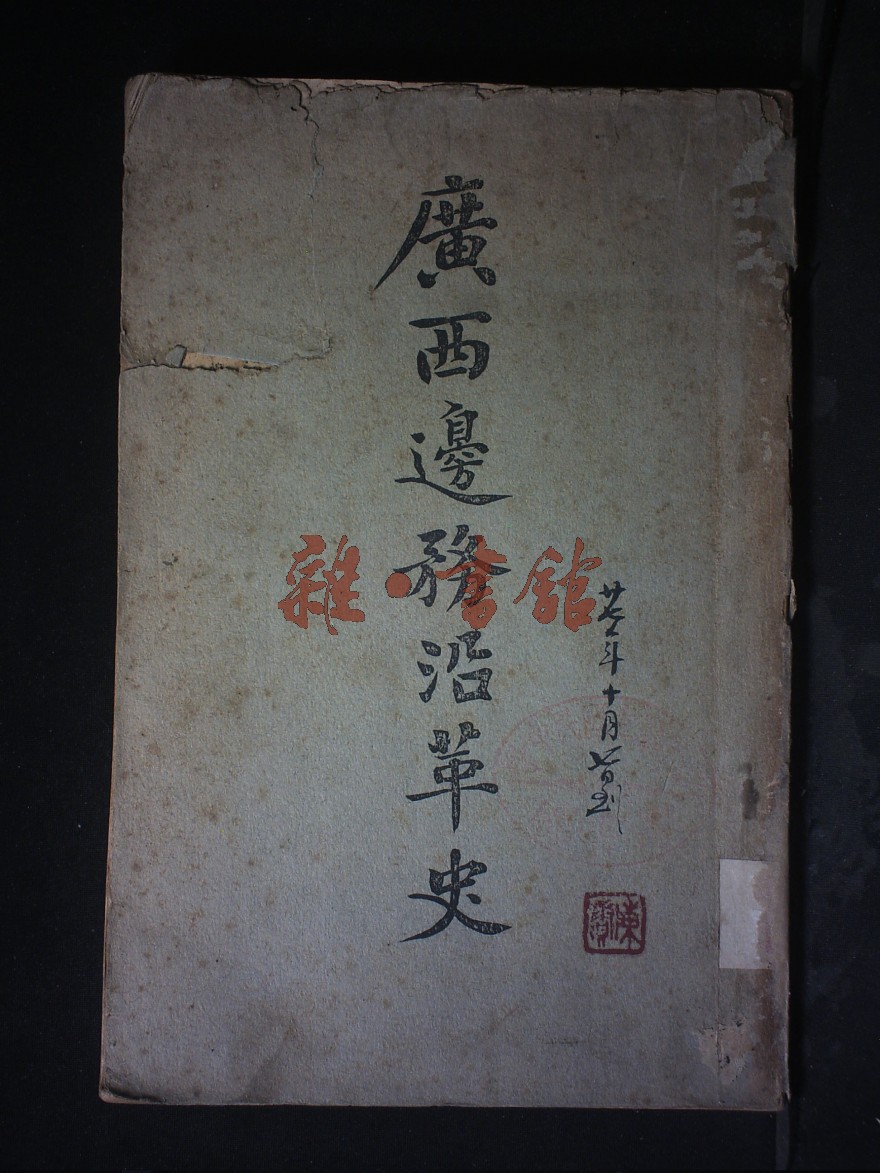 廣西邊務沿革史
雜·書館
年十月